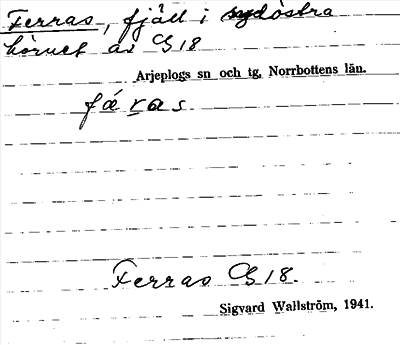 Ferras, fjäll i sydöstra
hörnet av G 18
Arjeplogs sn och tg, Norrbottens län.
fáras
Ferras G 18.
Sigvard Wallström, 1941.